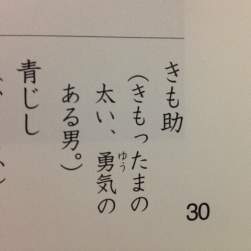 きも助
（きもったまの
太い、勇気の
ゆう
ある男。）
青じし
30